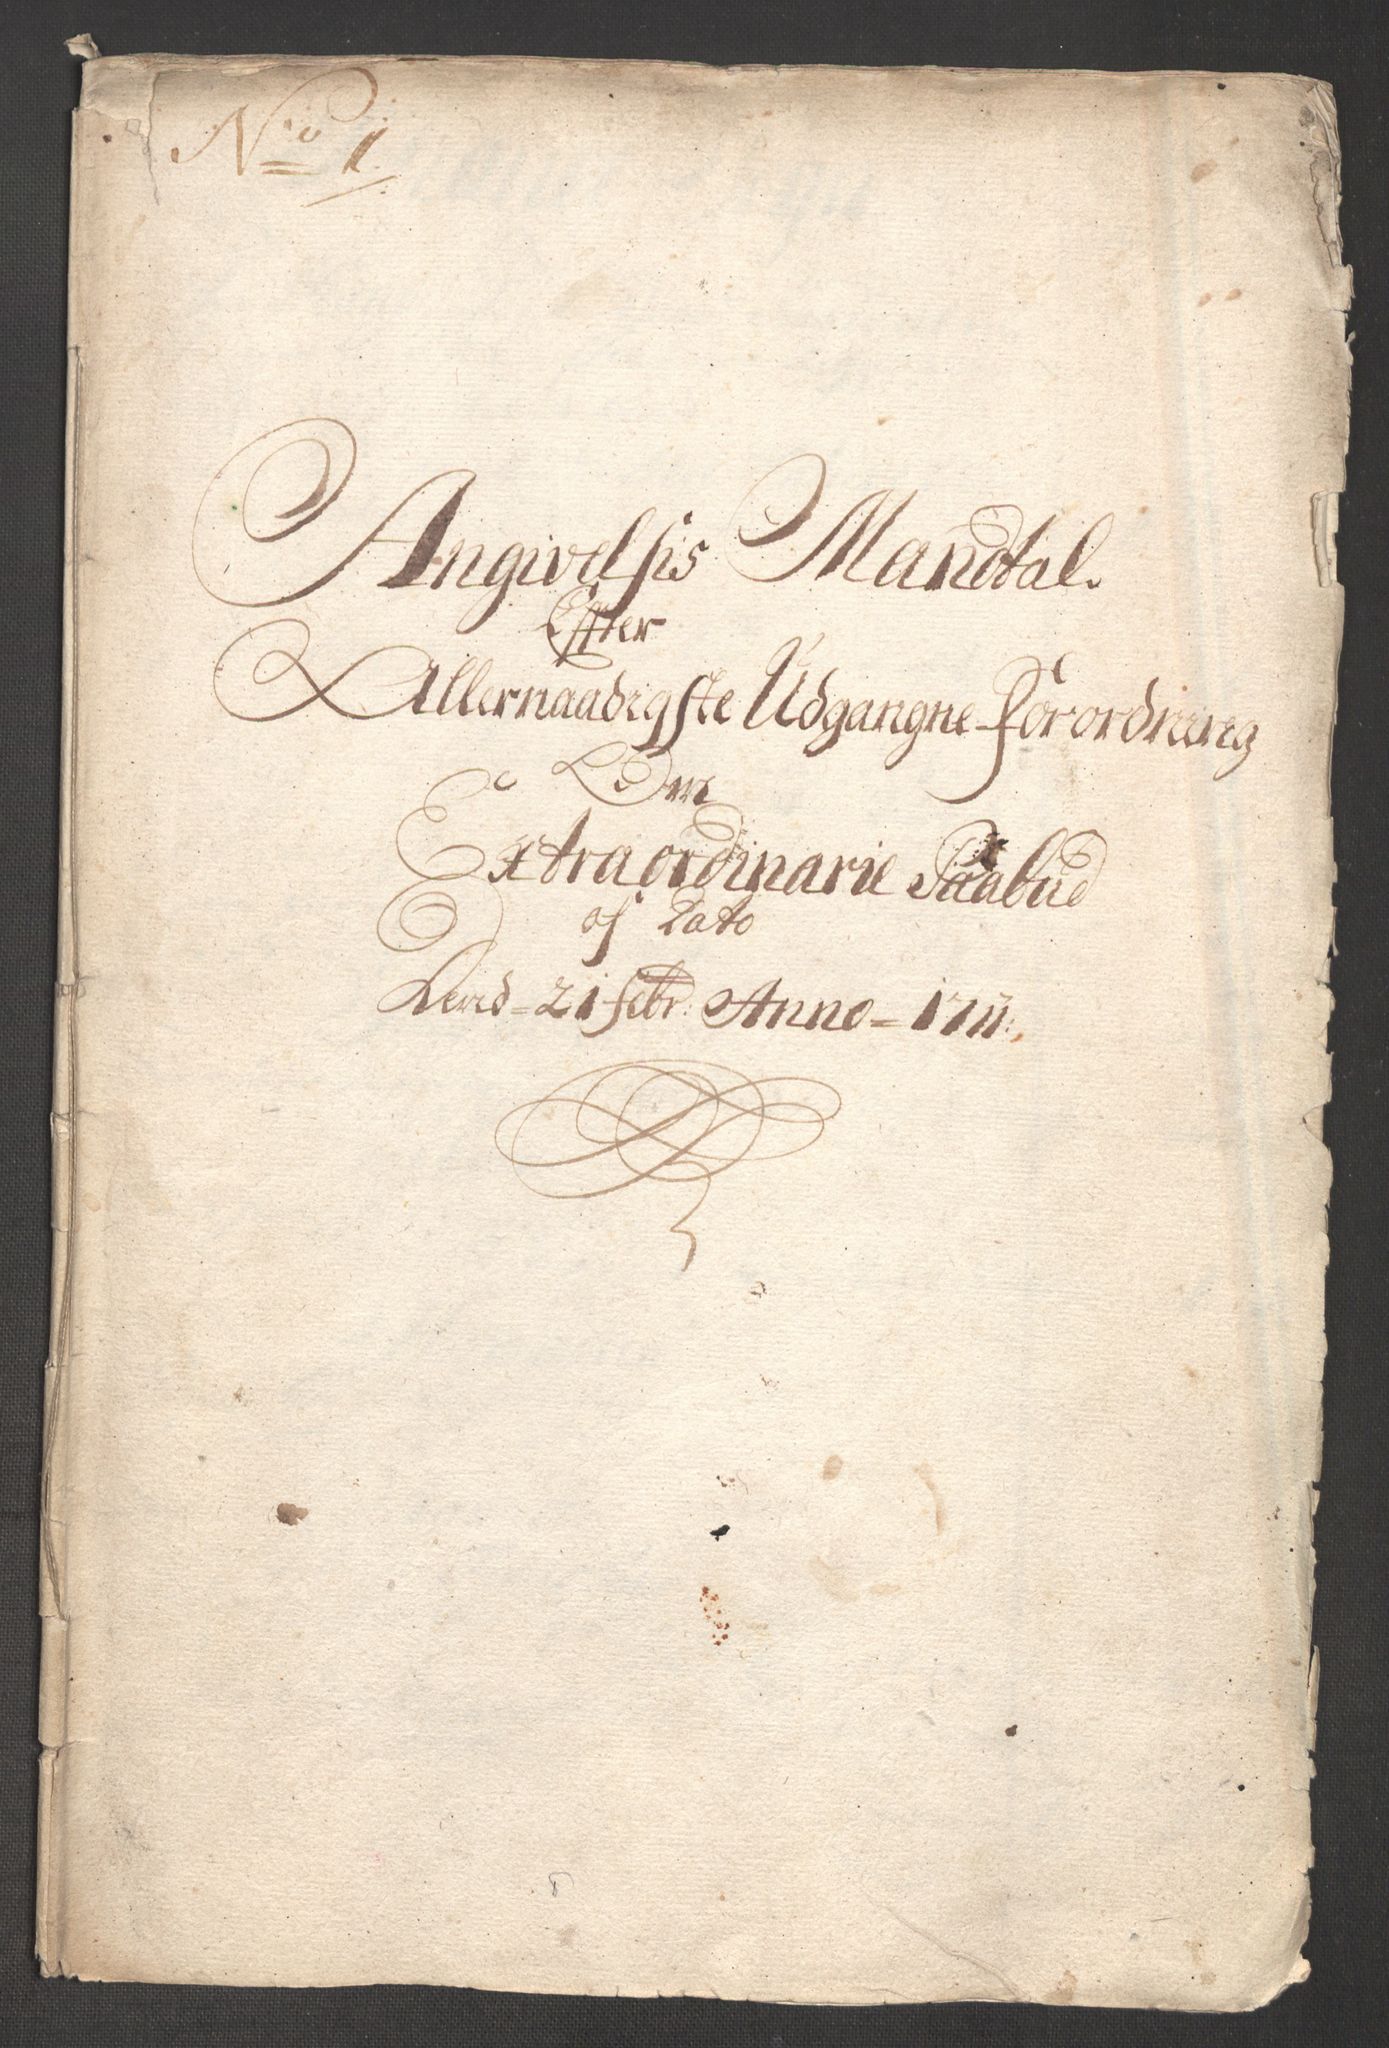 No 1
Angivelsis Mandtal.
Effter
Allernaadigste Udgangne Forordning
Om
Extraordinarie Paabud
af Dato
Dend 21 febr: Anno 1711.